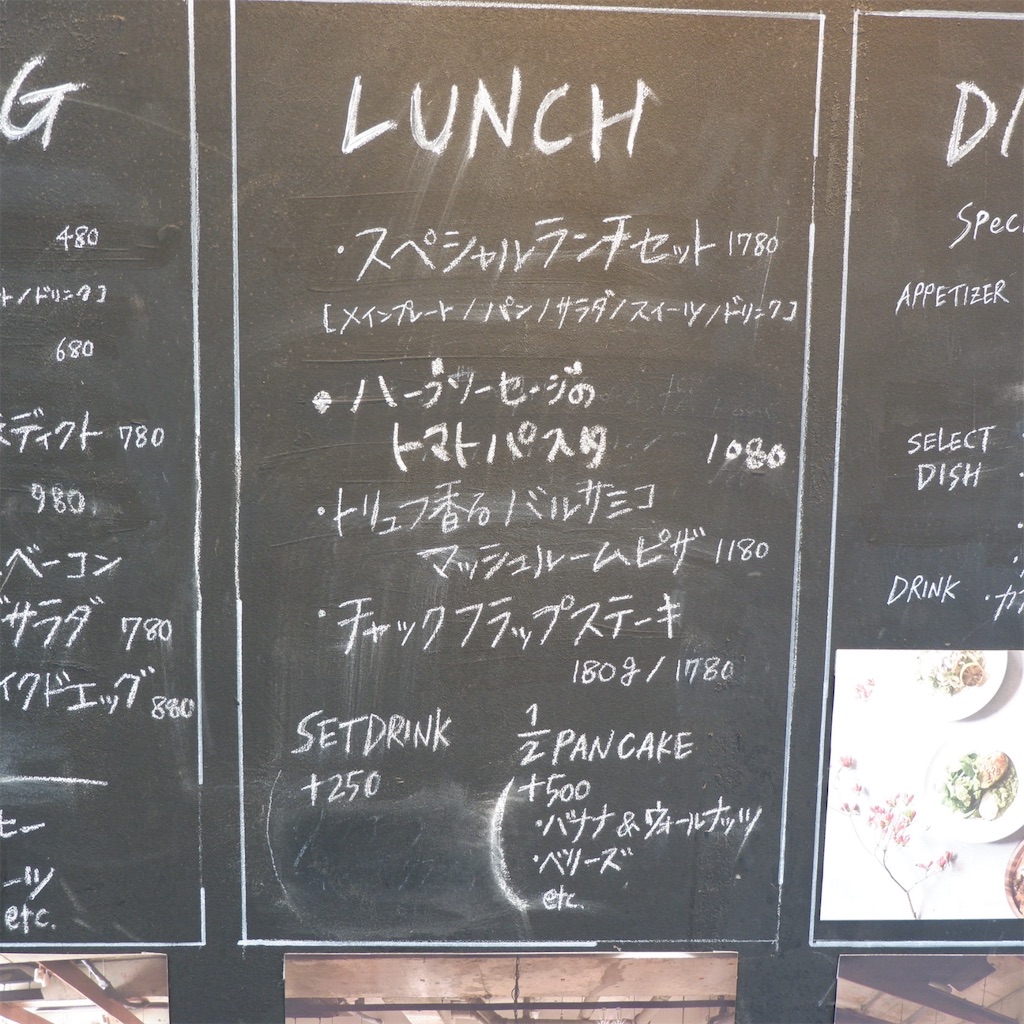 G
480
ト/ドリンク]
680
ネディクト 780
980
ベーコン
サラダ 780
イクドエッグ 880
ヒー
ーツ
etc.
LUNCH
・スペシャルランチセット 1780
[メインプレート/パン/サラダ/スイーツ/ドリンク]
・ハーブソーセージの
トマトパスタ 1080
・トリュフ香るバルサミコ
マッシュルームピザ 1180
・チャックフラップステーキ
180g/1780
SETDRINK
+250
1/2 PANCAKE
+500
・バナナ&ウォールナッツ
・ベリーズ
etc.
DI
Speci
APPETIZER
SELECT
DISH
DRINK